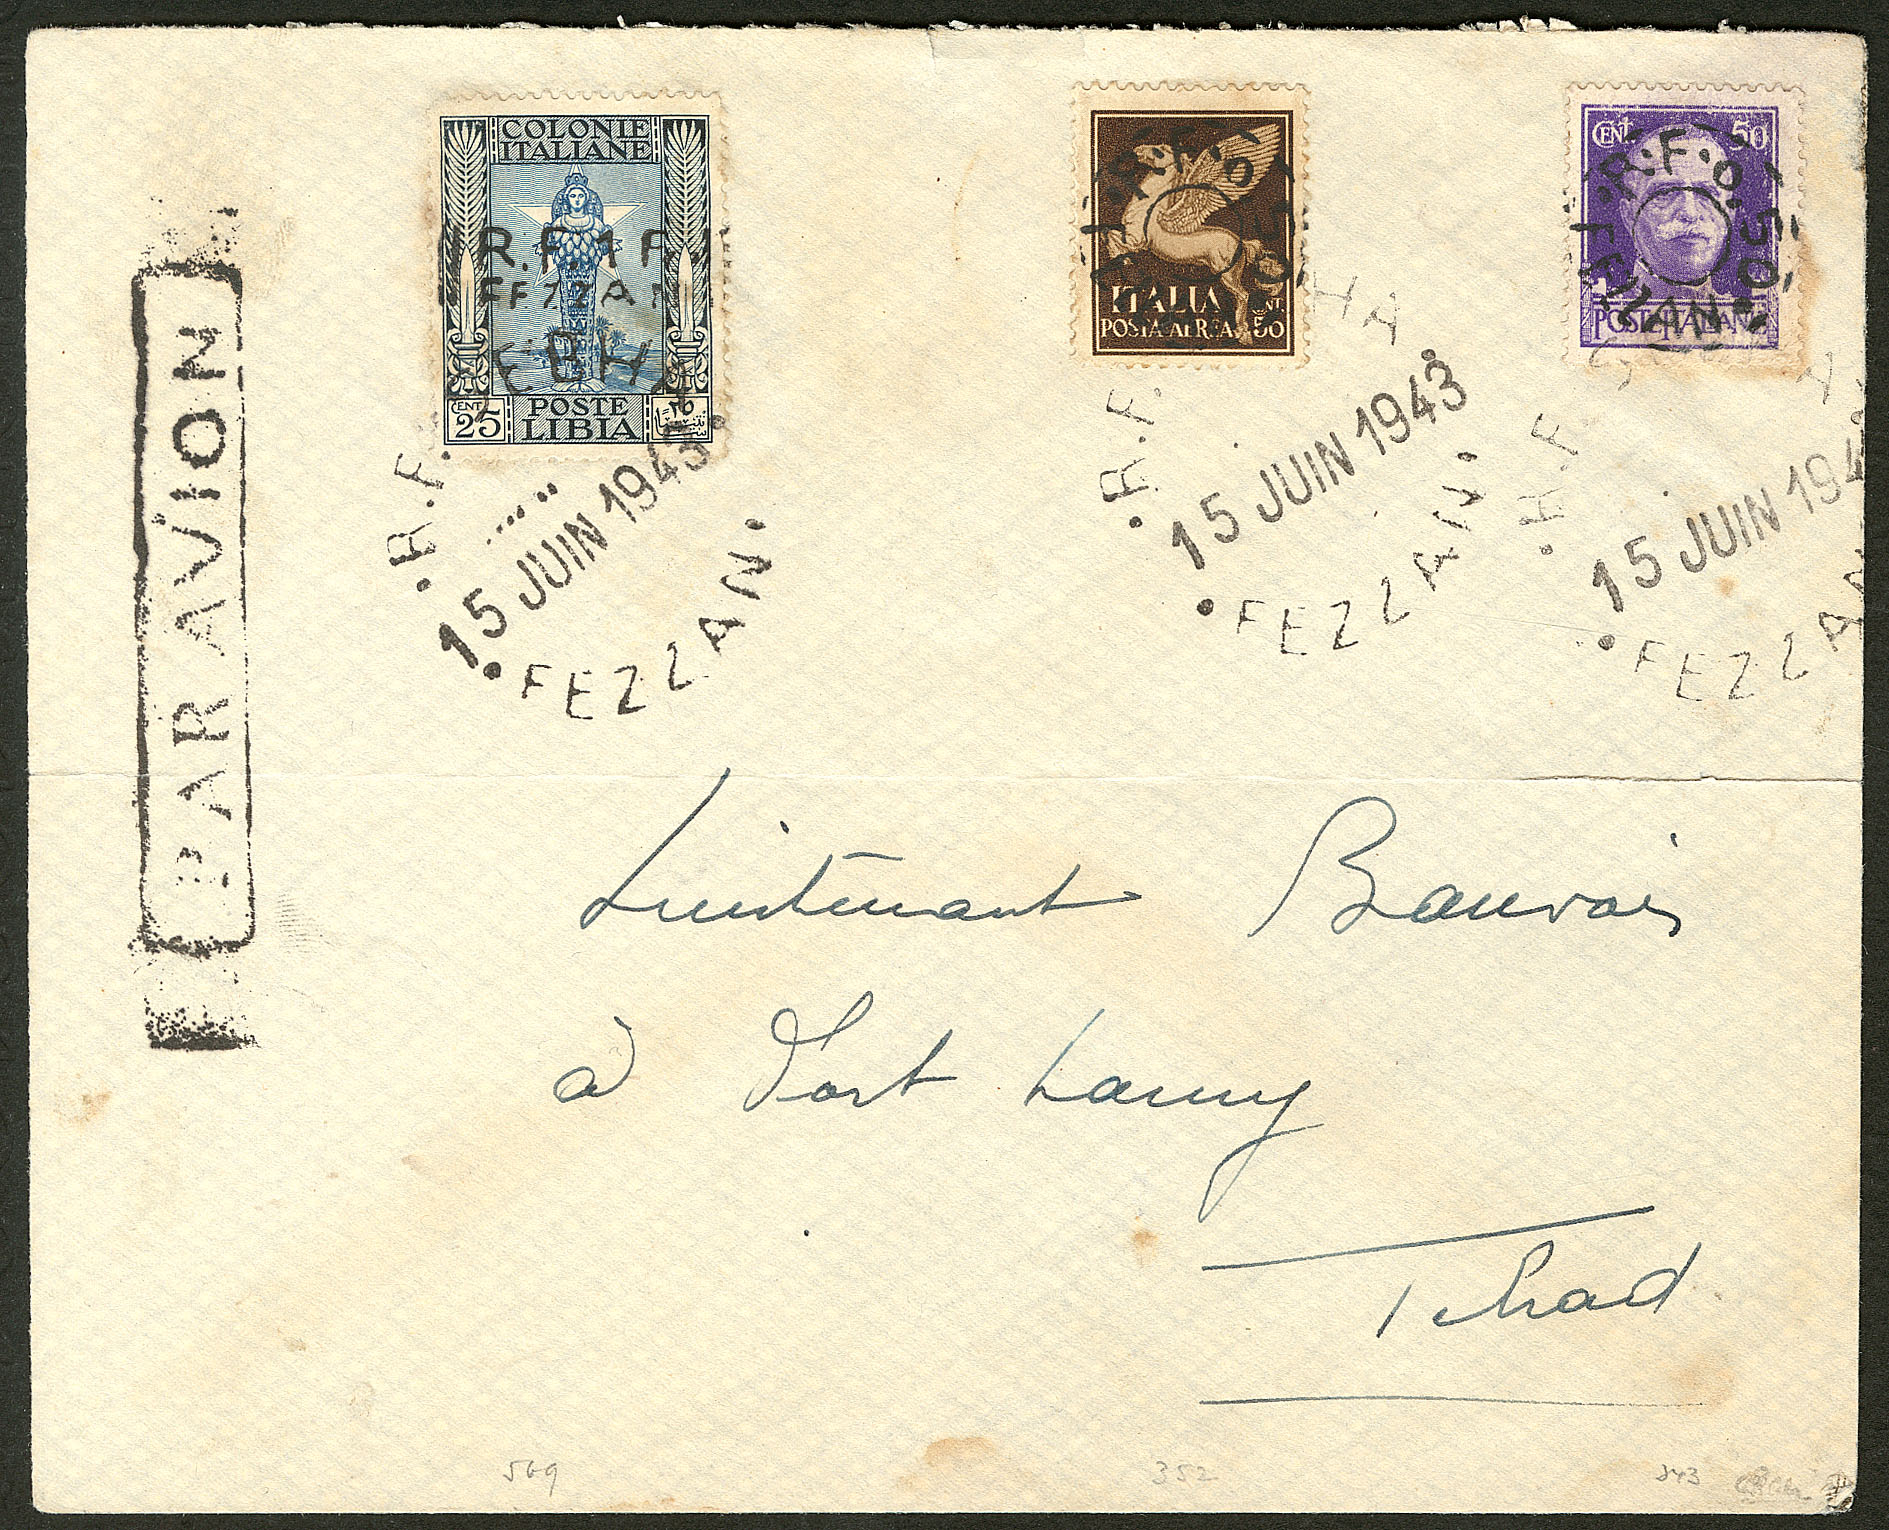 COLONIE
ITALIANE
R.F. 1 Fr.
FEZZAN
CENT 25
POSTE
LIBIA
SEBHA
R.F.
15 JUIN 1943
FEZZAN
R.F. 0.50
FEZZAN
ITALIA
POSTA AEREA
CENT. 50
R.F.
15 JUIN 1943
FEZZAN
CENT 50
R.F. 0.50
FEZZAN
POSTE ITALIANE
R.F.
15 JUIN 194
FEZZAN
PAR AVION
Lieutenant Beauvais
à Fort Lamy
Tchad
569
352